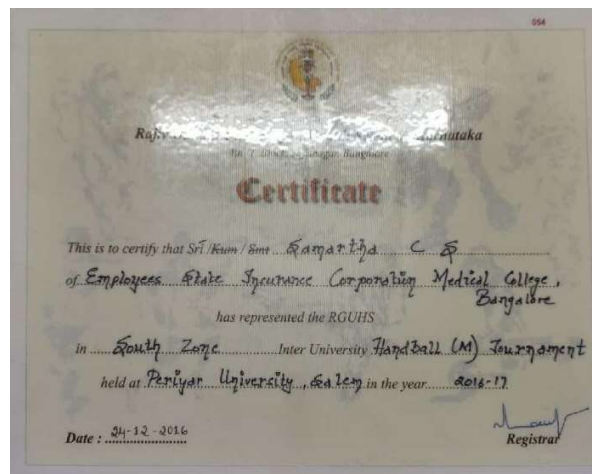 054
Karnataka
Bangalore
Certificate
This is to certify that Sri / Kum / Smt Samartha C S
of Employees State Insurance Corporation Medical College,
Bangalore
has represented the RGUHS
in South Zone Inter University Handball (M) Tournament
held at Periyar University, Salem in the year 2016-17
Date : 24-12-2016
Registrar